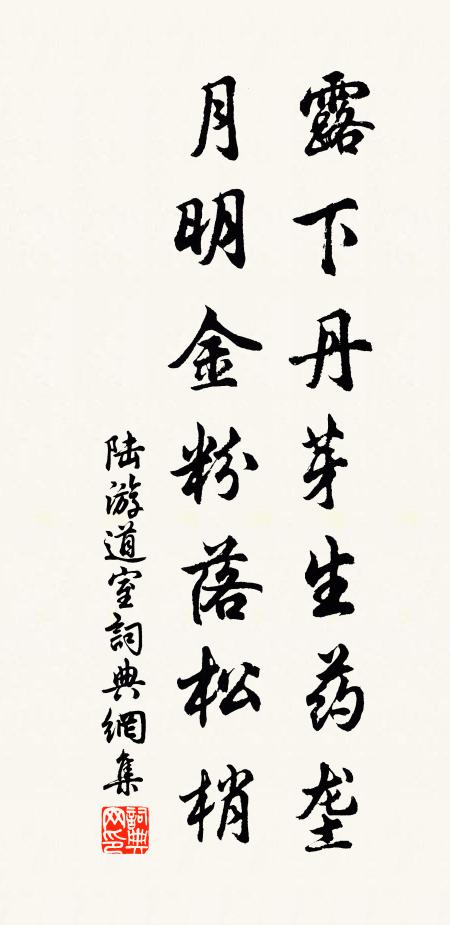 露下丹芽生药垄
月明金粉落松梢
陆游道室詞典網集
詞典网印